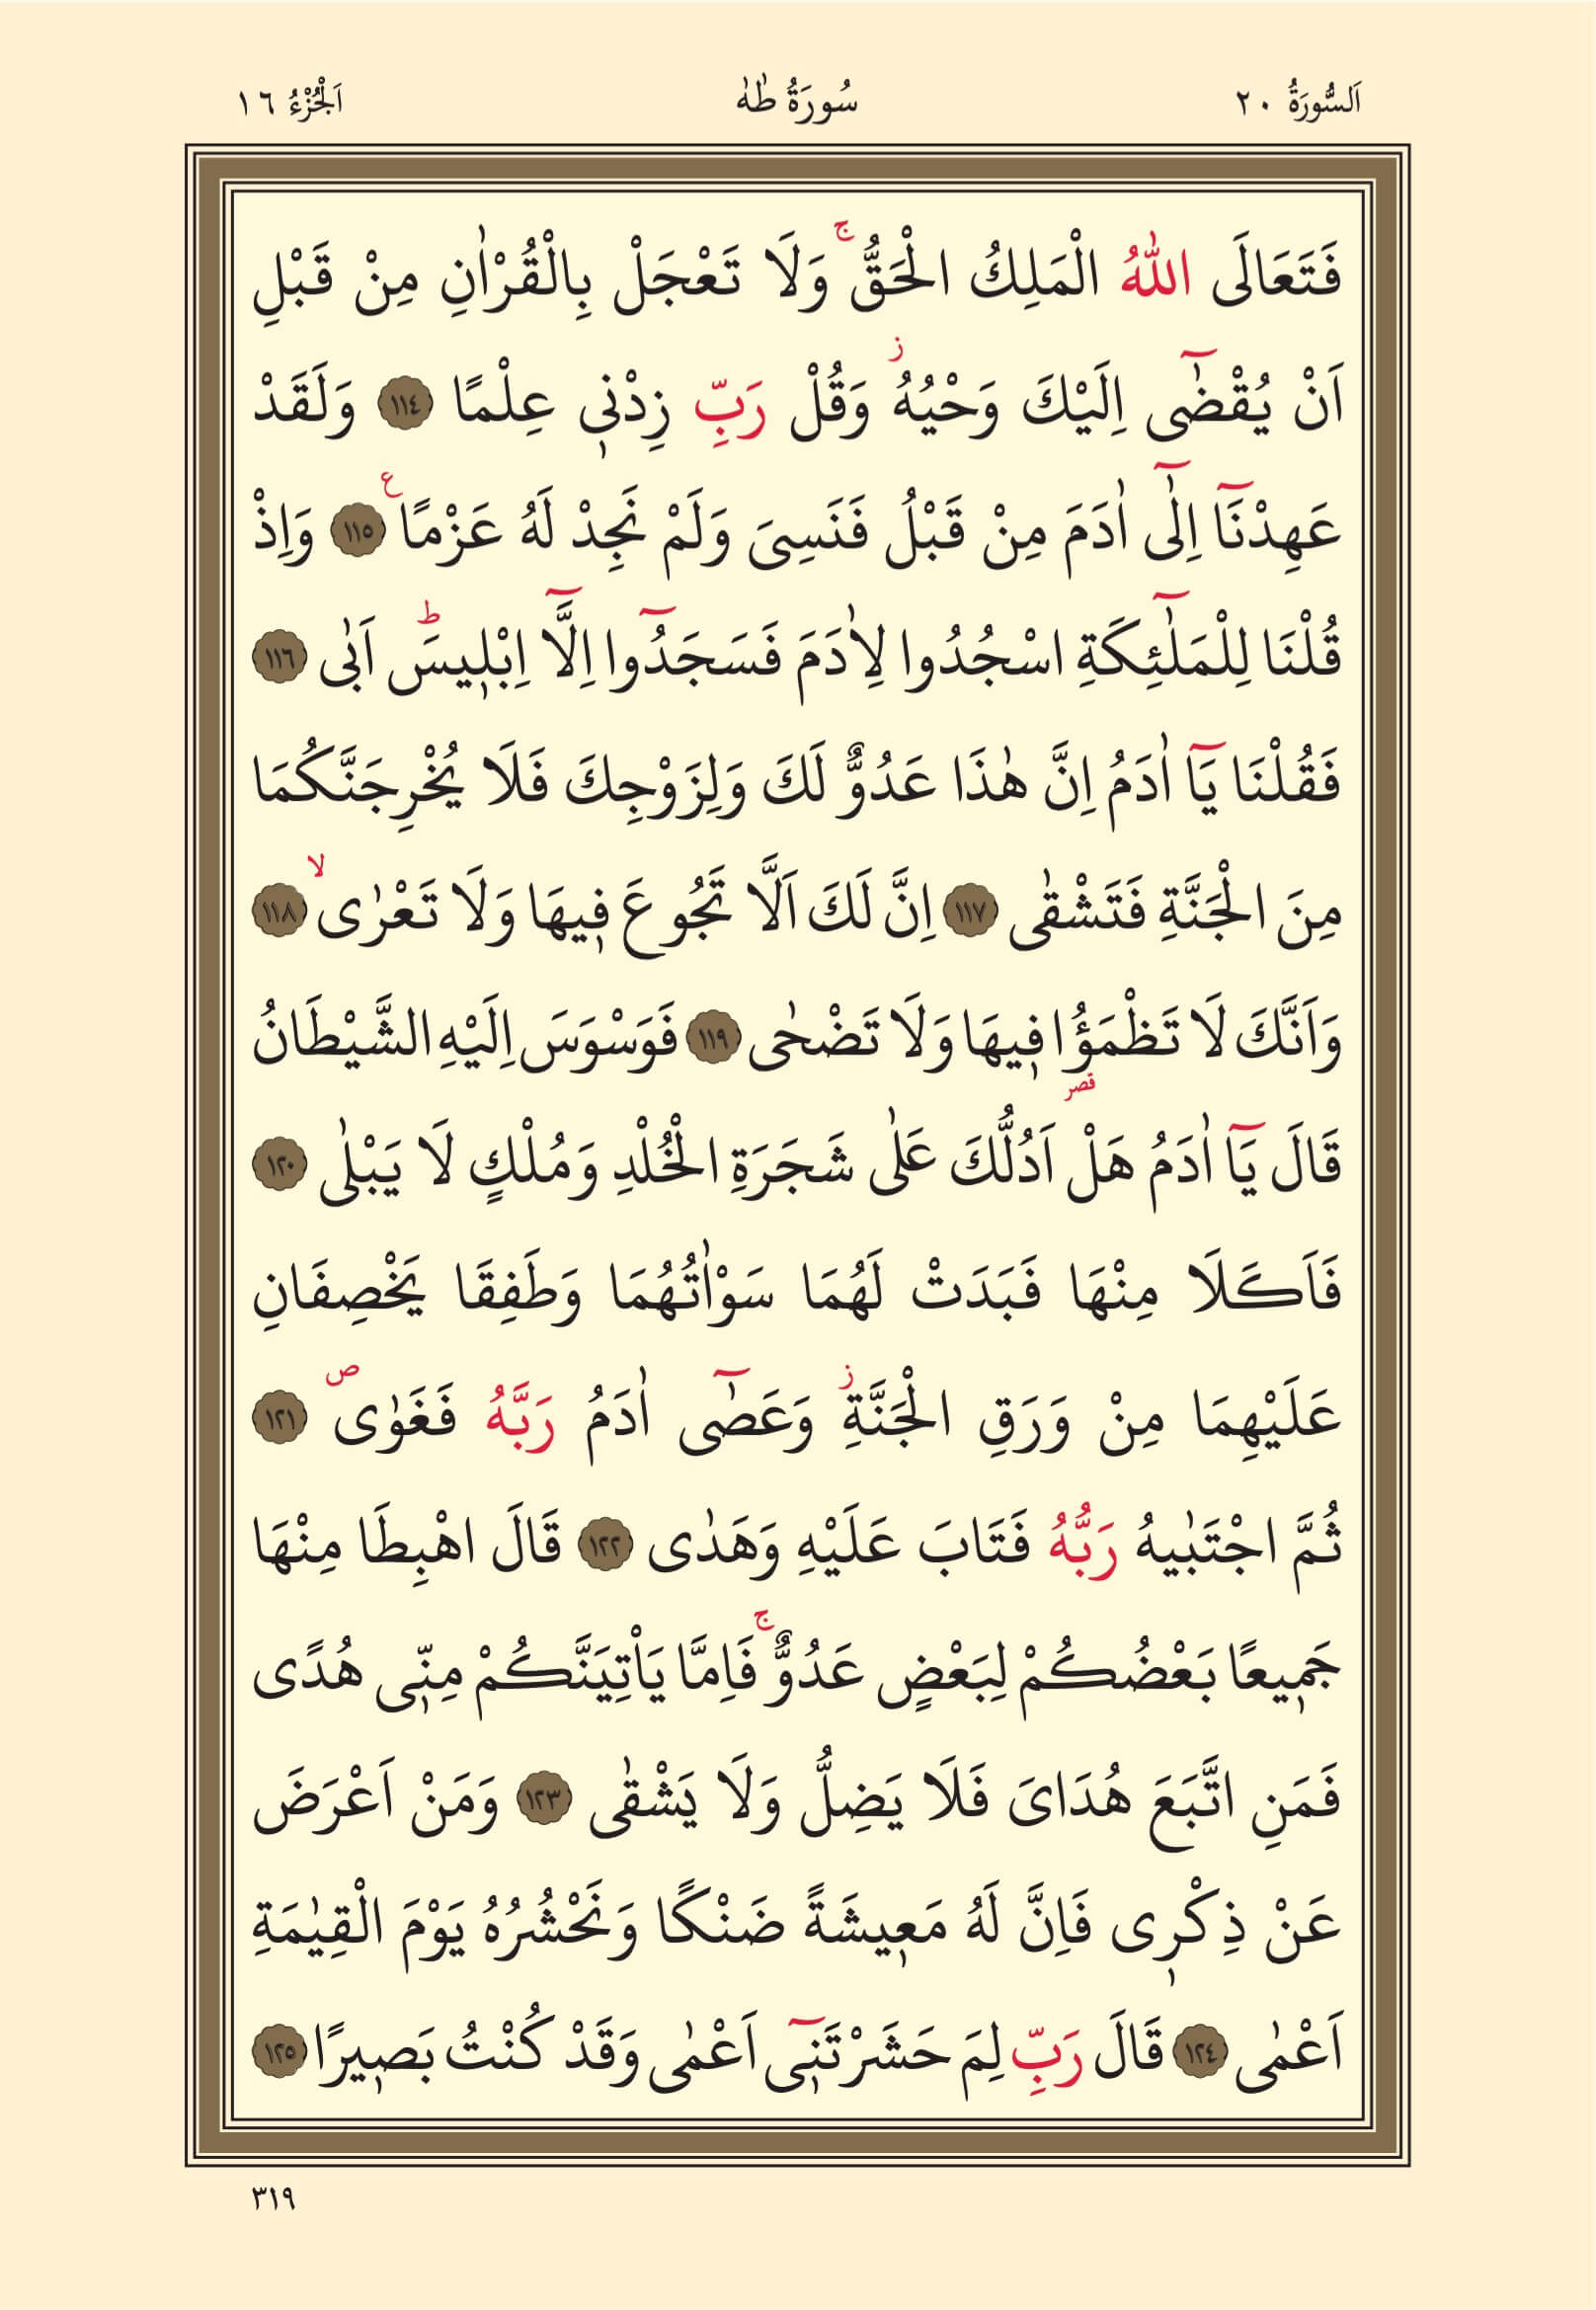 اَلسُّورَةُ ٢٠ سُورَةُ طٰهٰ اَلْجُزْءُ ١٦
فَتَعَالَى اللّٰهُ الْمَلِكُ الْحَقُّۚ وَلَا تَعْجَلْ بِالْقُرْاٰنِ مِنْ قَبْلِ
اَنْ يُقْضٰٓى اِلَيْكَ وَحْيُهُۘ وَقُلْ رَبِّ زِدْنٖى عِلْمًا ﴿١١٤﴾ وَلَقَدْ
عَهِدْنَٓا اِلٰٓى اٰدَمَ مِنْ قَبْلُ فَنَسِىَ وَلَمْ نَجِدْ لَهُ عَزْمًا ع ﴿١١٥﴾ وَاِذْ
قُلْنَا لِلْمَلٰٓئِكَةِ اسْجُدُوا لِاٰدَمَ فَسَجَدُٓوا اِلَّٓا اِبْلٖيسَؕ اَبٰى ﴿١١٦﴾
فَقُلْنَا يَٓا اٰدَمُ اِنَّ هٰذَا عَدُوٌّ لَكَ وَلِزَوْجِكَ فَلَا يُخْرِجَنَّكُمَا
مِنَ الْجَنَّةِ فَتَشْقٰى ﴿١١٧﴾ اِنَّ لَكَ اَلَّا تَجُوعَ فٖيهَا وَلَا تَعْرٰىۙ ﴿١١٨﴾
وَاَنَّكَ لَا تَظْمَؤُا فٖيهَا وَلَا تَضْحٰى ﴿١١٩﴾ فَوَسْوَسَ اِلَيْهِ الشَّيْطَانُ
قَالَ يَٓا اٰدَمُ هَلْ اَدُلُّكَ عَلٰى شَجَرَةِ الْخُلْدِ وَمُلْكٍ لَا يَبْلٰى ﴿١٢٠﴾
فَاَكَلَا مِنْهَا فَبَدَتْ لَهُمَا سَوْاٰتُهُمَا وَطَفِقَا يَخْصِفَانِ
عَلَيْهِمَا مِنْ وَرَقِ الْجَنَّةِؗ وَعَصٰٓى اٰدَمُ رَبَّهُ فَغَوٰىۖ ﴿١٢١﴾
ثُمَّ اجْتَبٰيهُ رَبُّهُ فَتَابَ عَلَيْهِ وَهَدٰى ﴿١٢٢﴾ قَالَ اهْبِطَا مِنْهَا
جَمٖيعًا بَعْضُكُمْ لِبَعْضٍ عَدُوٌّۚ فَاِمَّا يَاْتِيَنَّكُمْ مِنّٖى هُدًى
فَمَنِ اتَّبَعَ هُدَاىَ فَلَا يَضِلُّ وَلَا يَشْقٰى ﴿١٢٣﴾ وَمَنْ اَعْرَضَ
عَنْ ذِكْرٖى فَاِنَّ لَهُ مَعٖيشَةً ضَنْكًا وَنَحْشُرُهُ يَوْمَ الْقِيٰمَةِ
اَعْمٰى ﴿١٢٤﴾ قَالَ رَبِّ لِمَ حَشَرْتَنٖٓى اَعْمٰى وَقَدْ كُنْتُ بَصٖيرًا ﴿١٢٥﴾
٣١٩